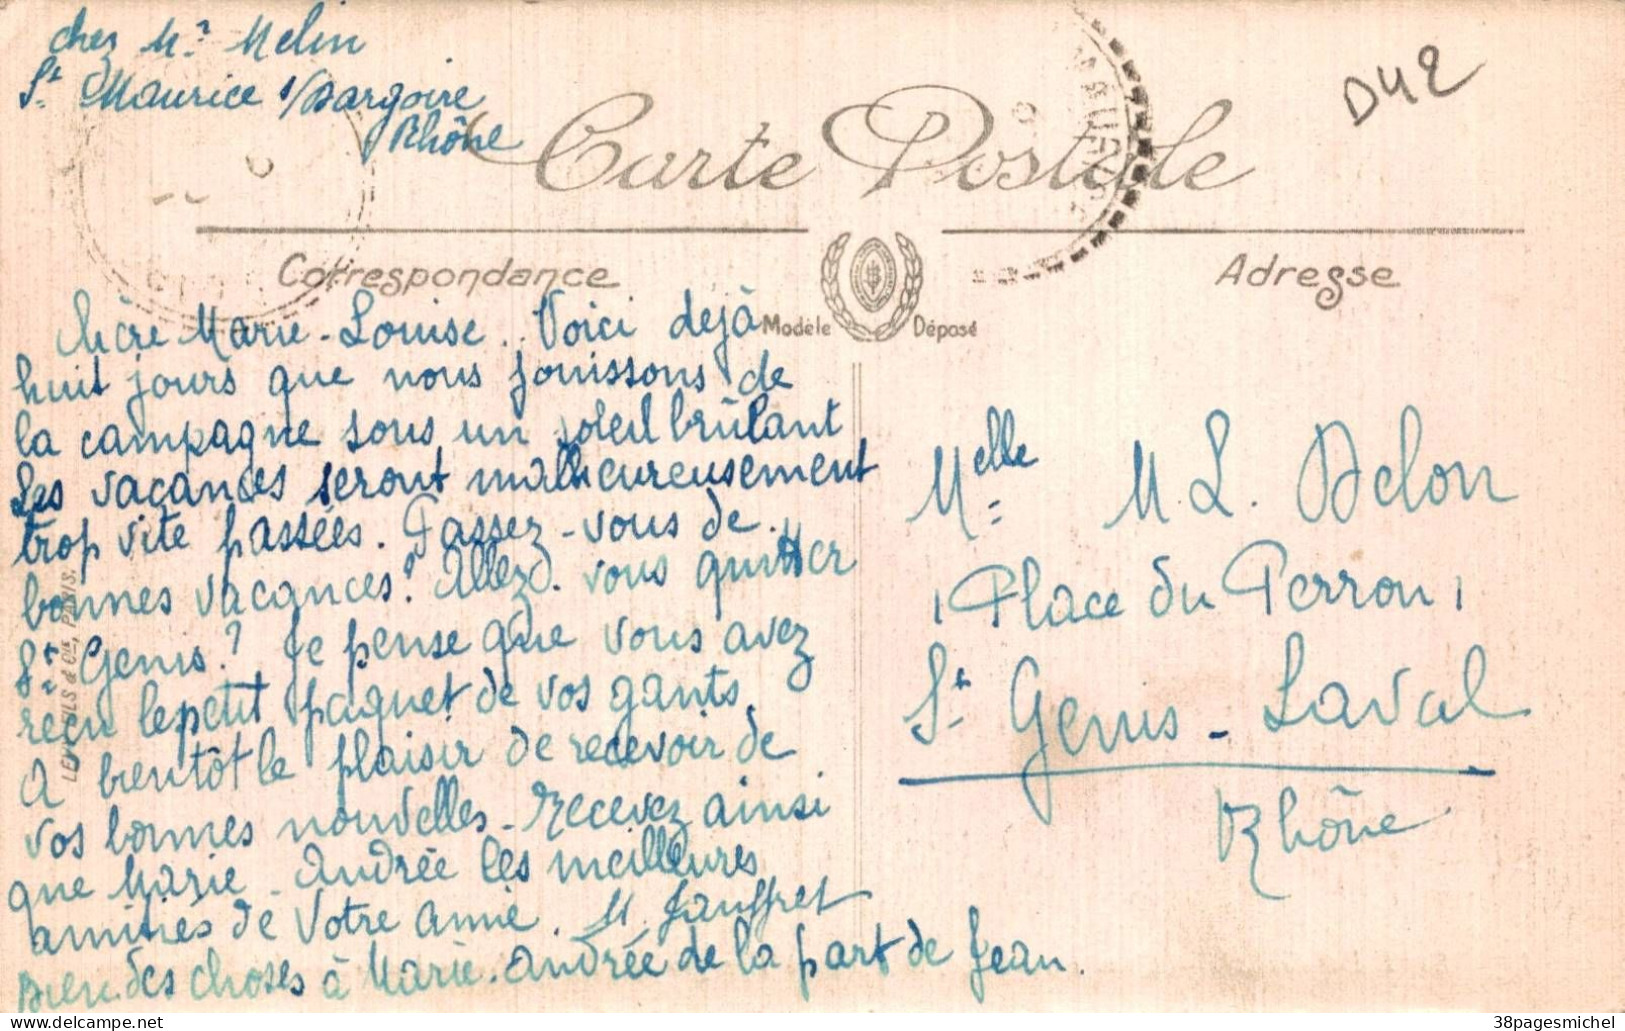 chez Mr. Melin
St. Maurice s/Dargoire
Rhône
D42
Carte Postale
Correspondance
Adresse
Modèle Déposé
Chère Marie-Louise. Voici dejà
huit jours que nous jouissons de
la campagne sous un soleil brûlant
Les vacances seront malheureusement
trop vite passées. Passez-vous de
bonnes vacances? Allez-vous quitter
St. Genis? Je pense que vous avez
reçu le petit paquet de vos gants.
A bientôt le plaisir de recevoir de
vos bonnes nouvelles. Recevez ainsi
que Marie-Andrée les meilleures
amitiés de Votre amie. M. Jauffret
Bien des choses à Marie-Andrée de la part de Jean.
Melle M. L. Delon
Place du Perron,
St Genis-Laval
Rhône
LEVY FILS & Cie, PARIS.
38pagesmichel